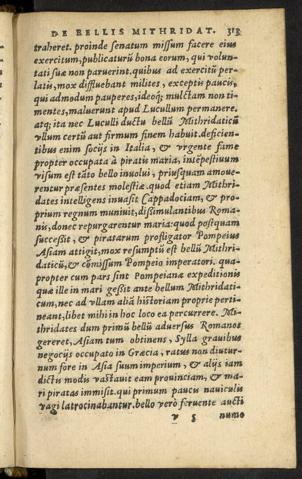 DE BELLIS MITHRIDAT. 313
traheret. proinde senatum missum facere eius
exercitum, publicaturū bona eorum, qui volun-
tati suæ non paruerint. quibus ad exercitū per-
latis, mox diffluebant milites, exceptis paucis,
qui admodum pauperes, ideoq; mulctam non ti-
mentes, maluerunt apud Lucullum permanere.
atq; ita nec Luculli ductu bellū Mithridaticū
vllum certū aut firmum finem habuit. deficien-
tibus enim socijs in Italia, & vrgente fame
propter occupata à piratis maria, intēpestiuum
visum est tāto bello inuolui, priusquam amoue-
rentur præsentes molestiæ. quod etiam Mithri-
dates intelligens inuasit Cappadociam, & pro-
prium regnum muniuit, dissimulantibus Roma-
nis, donec repurgarentur maria: quod postquam
successit, & piratarum profligator Pompeius
Asiam attigit, mox resumptū est bellū Mithri-
daticū, & cōmissum Pompeio imperatori. qua-
propter cum pars sint Pompeianæ expeditionis
quæ ille in mari gessit ante bellum Mithridati-
cum, nec ad vllam aliā historiam proprie perti-
neant, libet mihi in hoc loco ea percurrere. Mi-
thridates dum primū bellū aduersus Romanos
gereret, Asiam tum obtinens, Sylla grauibus
negocijs occupato in Græcia, ratus non diutur-
num fore in Asia suum imperium, & alijs iam
dictis modis vastauit eam prouinciam, & ma-
ri piratas immisit. qui primum paucis nauiculis
vagi latrocinabantur. bello verò feruente aucti
v 5 numo